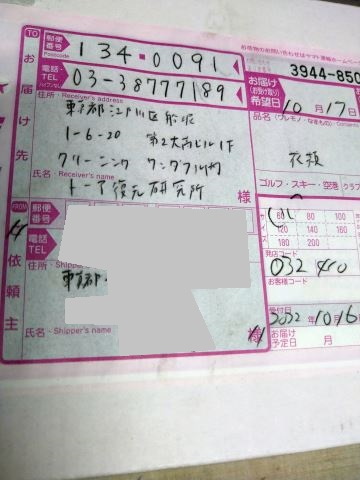 お荷物のお問い合わせはヤマト運輸ホームページ
TO
お届け先
郵便番号
Postcode
134-0091
電話
TEL
03-38777189
住所・Receiver's address
東京都江戸川区船堀
1-6-20 第2大高ビル1F
クリーニング ワンダフル内
氏名・Receiver's name
トーア復元研究所
様
3944-850
お届け
(お受け取り)
希望日
10月17日
品名
衣類
ゴルフ・スキー・空港
60 80 100
120 140 160
180 200
発店コード
032 450
お客様コード
FROM
依頼主
郵便番号
電話
TEL
住所・Shipper's
東京都
氏名・Shipper's name
様
受付日
2022年10月16
お届け
予定日
月